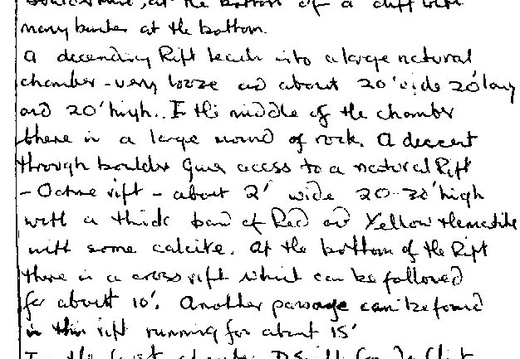 at the bottom of a cliff with
many bushes at the bottom.
A decending Rift leads into a large natural
chamber - very loose and about 20' wide 20' long
and 20' high. In the middle of the chamber
there is a large mound of rock. A descent
through boulders gives access to a natural Rift
- Ochre rift - about 2' wide 20-30' high
with a thick band of Red and Yellow Hematite
with some calcite. At the bottom of the Rift
there is a cross rift which can be followed
for about 10'. Another passage can be found
in this rift running for about 15'
In the first chamber